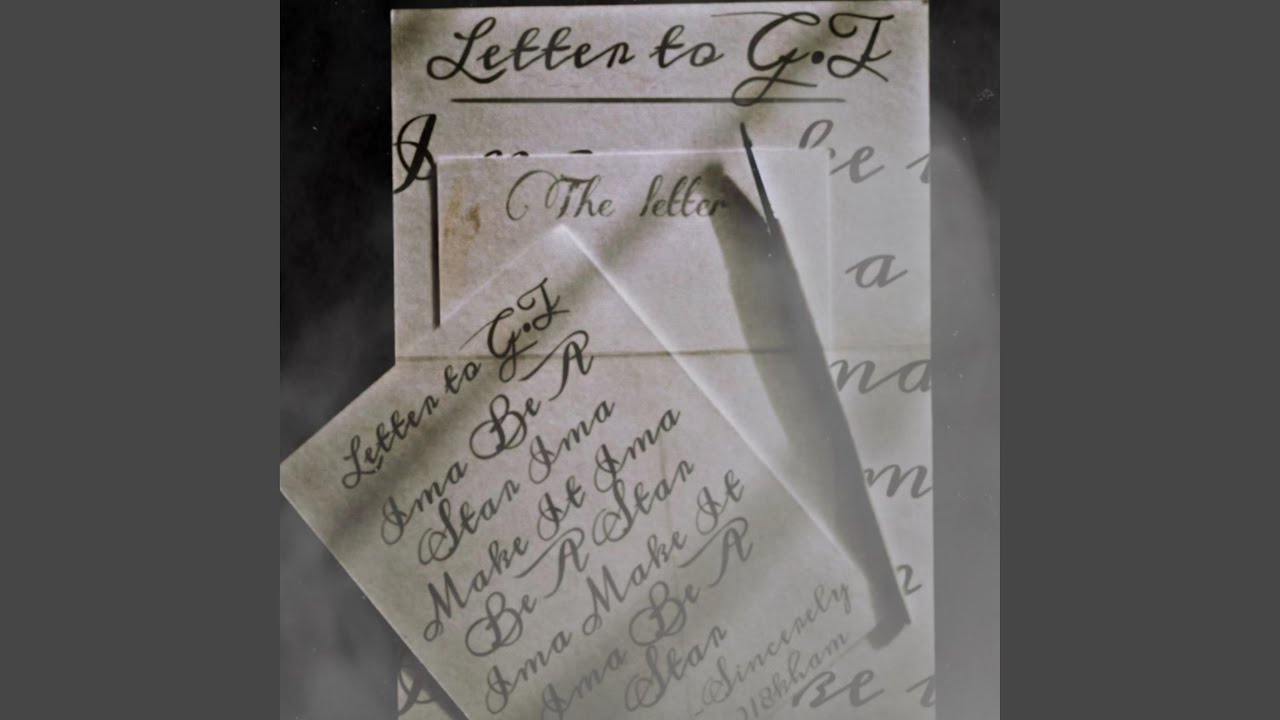 Letter to G.I
The letter
Letter to G.I
Ima Be A
Star Ima
Make It Ima
Be A Star
Ima Make It
Ima Be A
Star
Sincerely
be
a